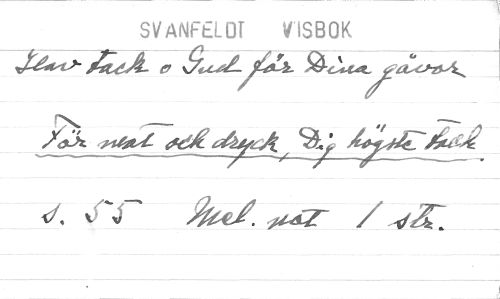 SVANFELDT VISBOK
Hav tack o Gud för Dina gåvor
För mat och dryck, Dig högste tack
s. 55 Mel. not 1 str.